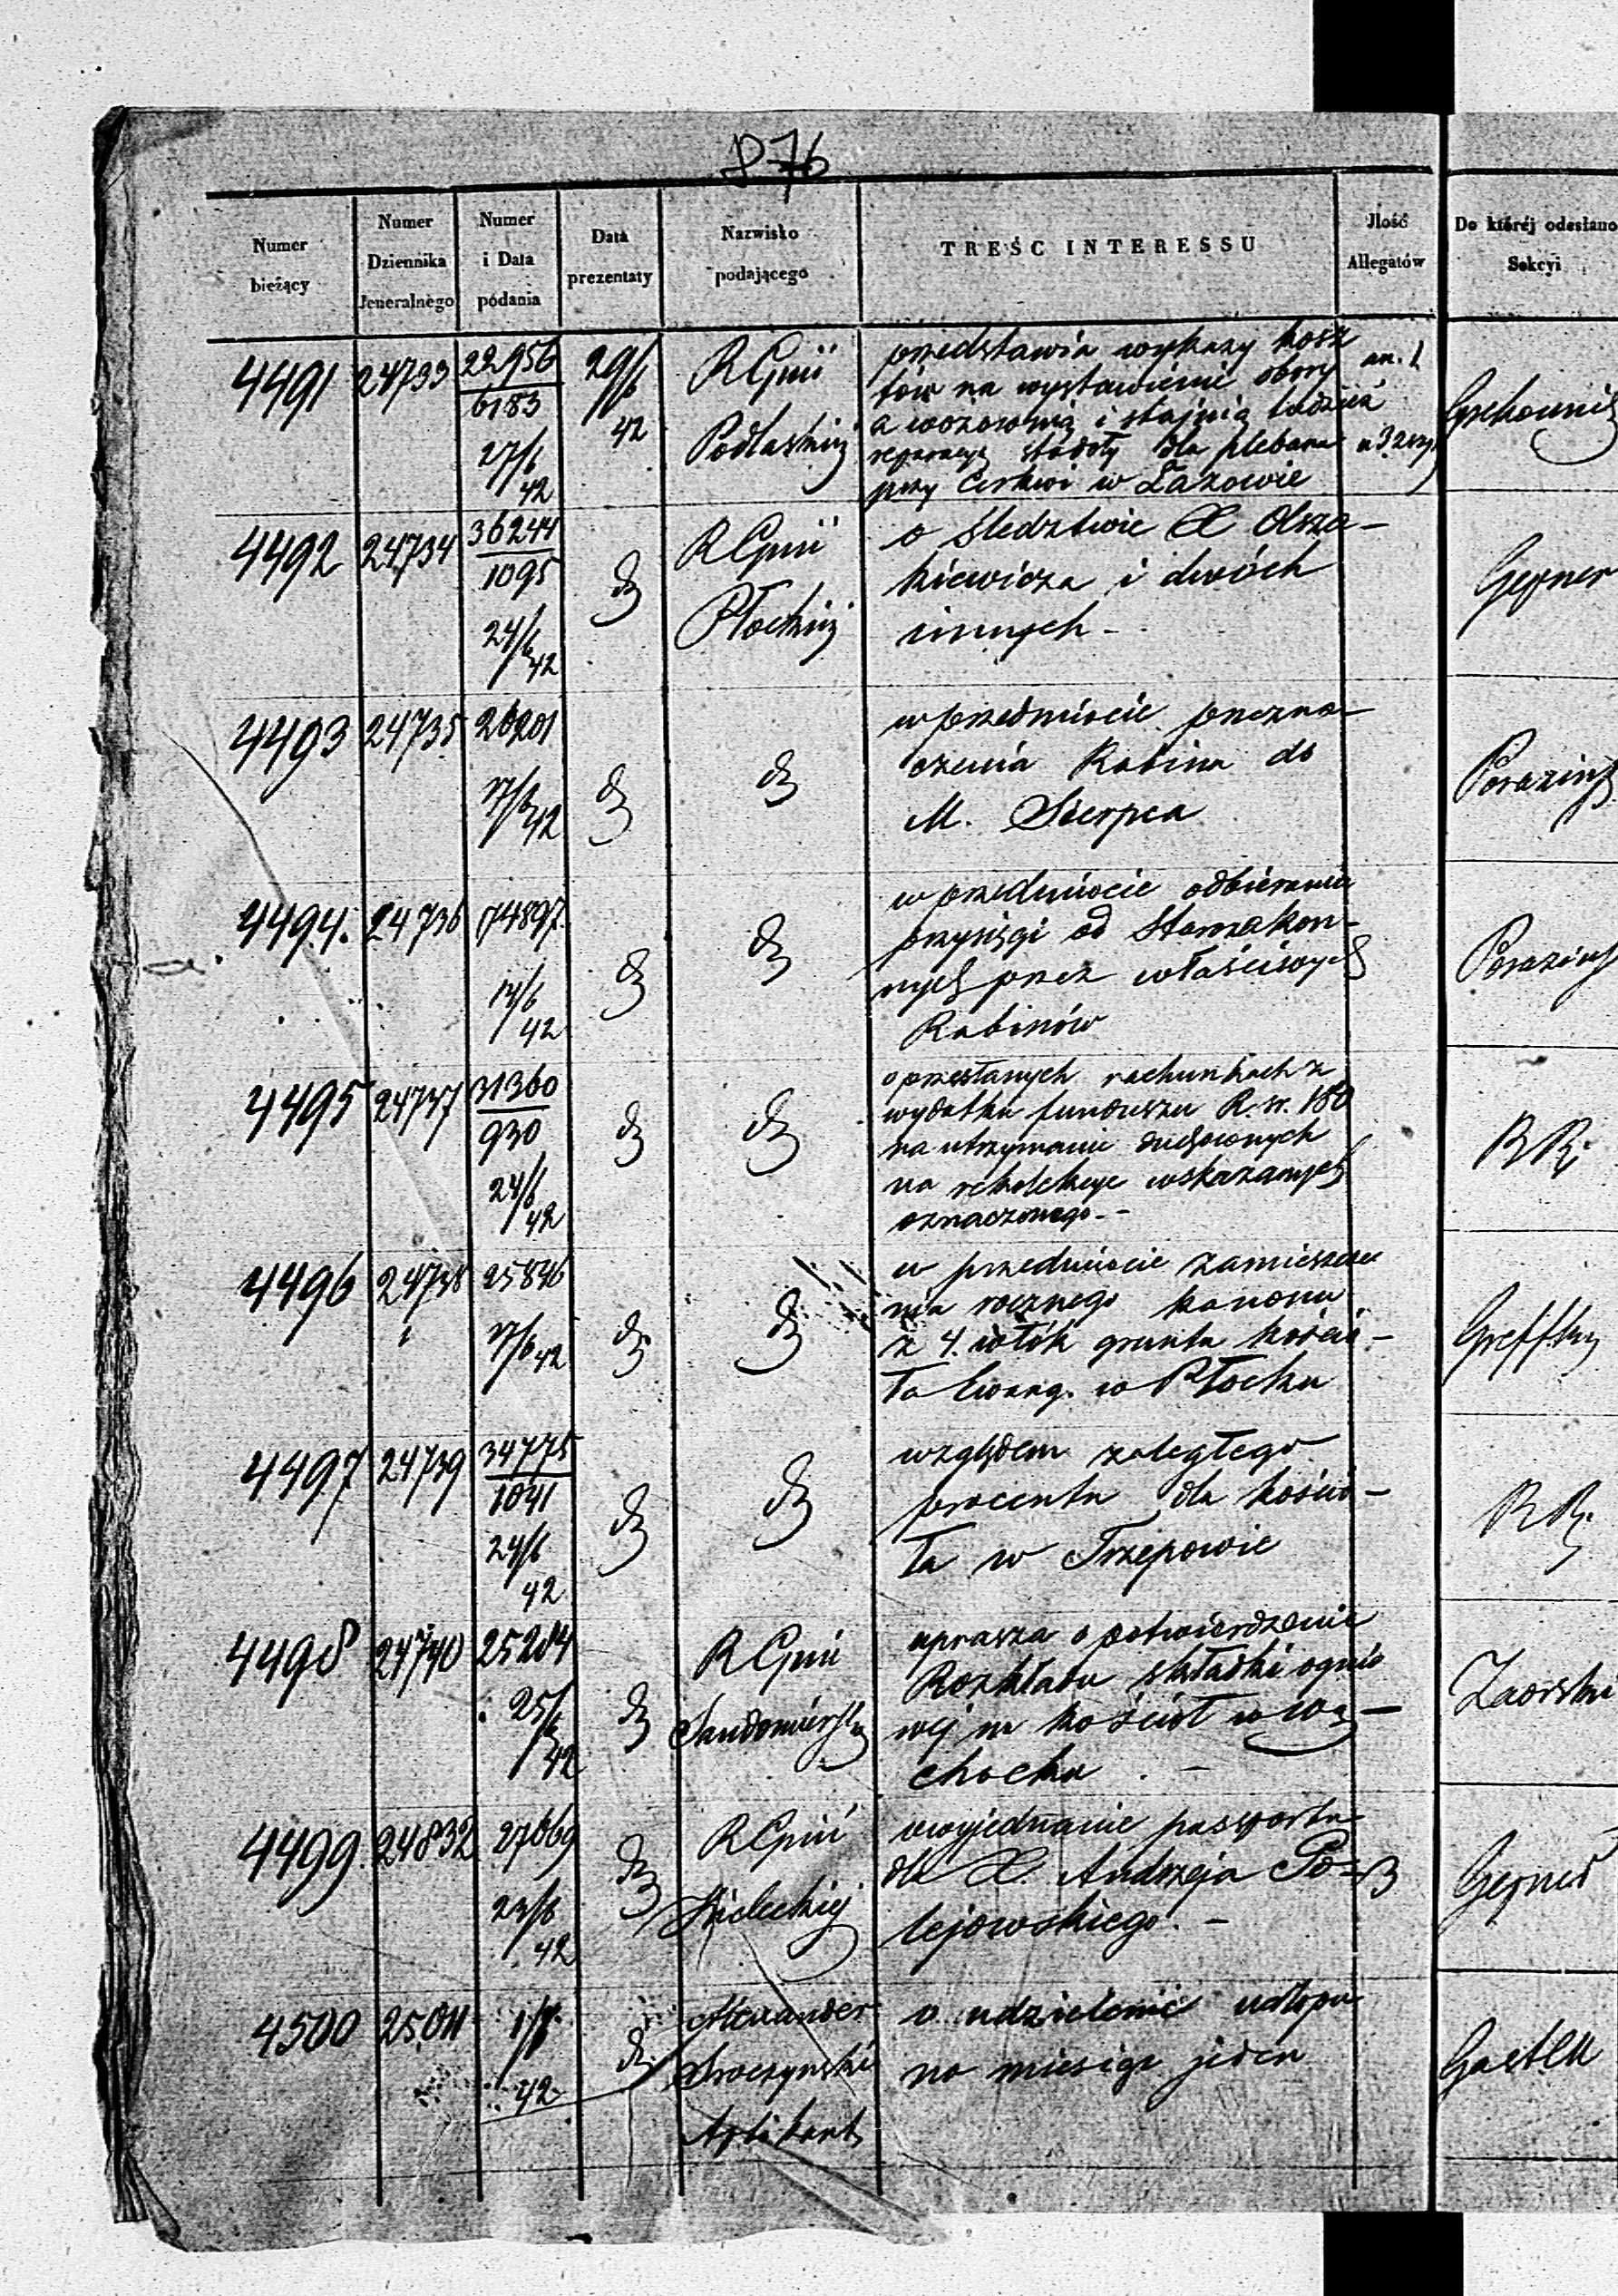 876
Numer bieżący
Numer Dziennika Jeneralnego
Numer i Data podania
Data prezentaty
Nazwisko podającego
TREŚĆ INTERESSU
Ilość Allegatów
Do któréj odesłano Sekcyi
4491 24733 22956/6183 27/6 42 29/6 42 RGnii Podlaskiéj
przedstawia wykazy kosz
tów na wystawienie obory an. 1
a wozownią i stajnią tudzież
reparacyą stodoły dla plebana
przy Cerkwi w Łazowie
4492 24734 36244/1095 24/6 42 d RGnii Płockiéj
o śledztwie X Olsza-
kiewicza i dwóch
innych - Gepner
4493 24735 26201 17/6 42 d d
w przedmiocie przezna-
czenia Rabina do
M. Sierpca
4494. 24736 74897. 14/6 42 d d
w przedmiocie odbierania
przysięgi od Starozakon-
nych przez właściwych
Rabinów
4495 24737 31360/930 24/6 42 d d
o przesłanych rachunkach z
wydatku funduszu R. sr. 180
na utrzymanie duchownych
na rekolekcye wskazanych
oznaczonego. - RR.
4496 24738 25846 17/6 42 d d
w przedmiocie zamieszcze
nia rocznego kanonu
z 4. włók gruntu kościo-
ła Ewang. w Płocku
4497 24739 34775/1041 24/6 42 d d
względem zaległego
procentu dla kościo-
ła w Trzepowie RR.
4498 24740 25204 25/6 42 d RGnii Sandomierskiéj
uprasza o potwierdzenie
Rozkładu składki ognio
wéj na kościół w Wą-
chocku . - Zaorski
4499. 24832 27069 23/6 42 d RGnii Kieleckiéj
o wyjednanie paszportu
dla X. Andrzeja Po-
lejowskiego. - Gepner
4500 25011 1/7 42 d Alexander Sroczyński Aplikant
o udzielenie urlopu
na miesiąc jeden